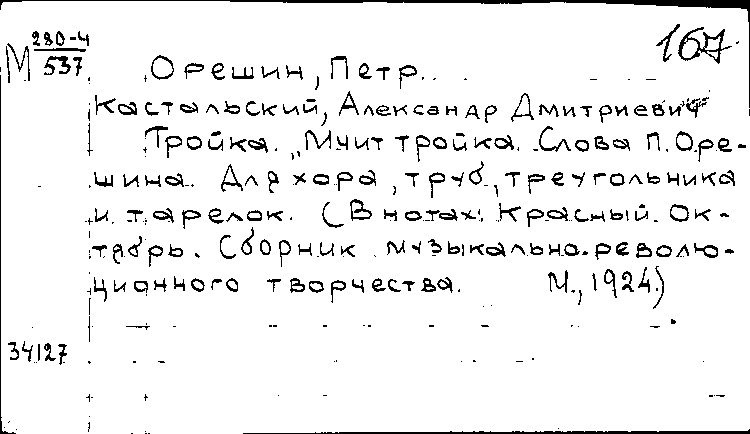 М 280-4/537
167.
Орешин, Петр.
Кастальский, Александр Дмитриевич
Тройка. "Мчит тройка. Слова П. Оре-
шина. Для хора, труб, треугольника
и тарелок. (В нотах: Красный Ок-
тябрь. Сборник музыкально-револю-
ционного творчества. М., 1924.)
34127